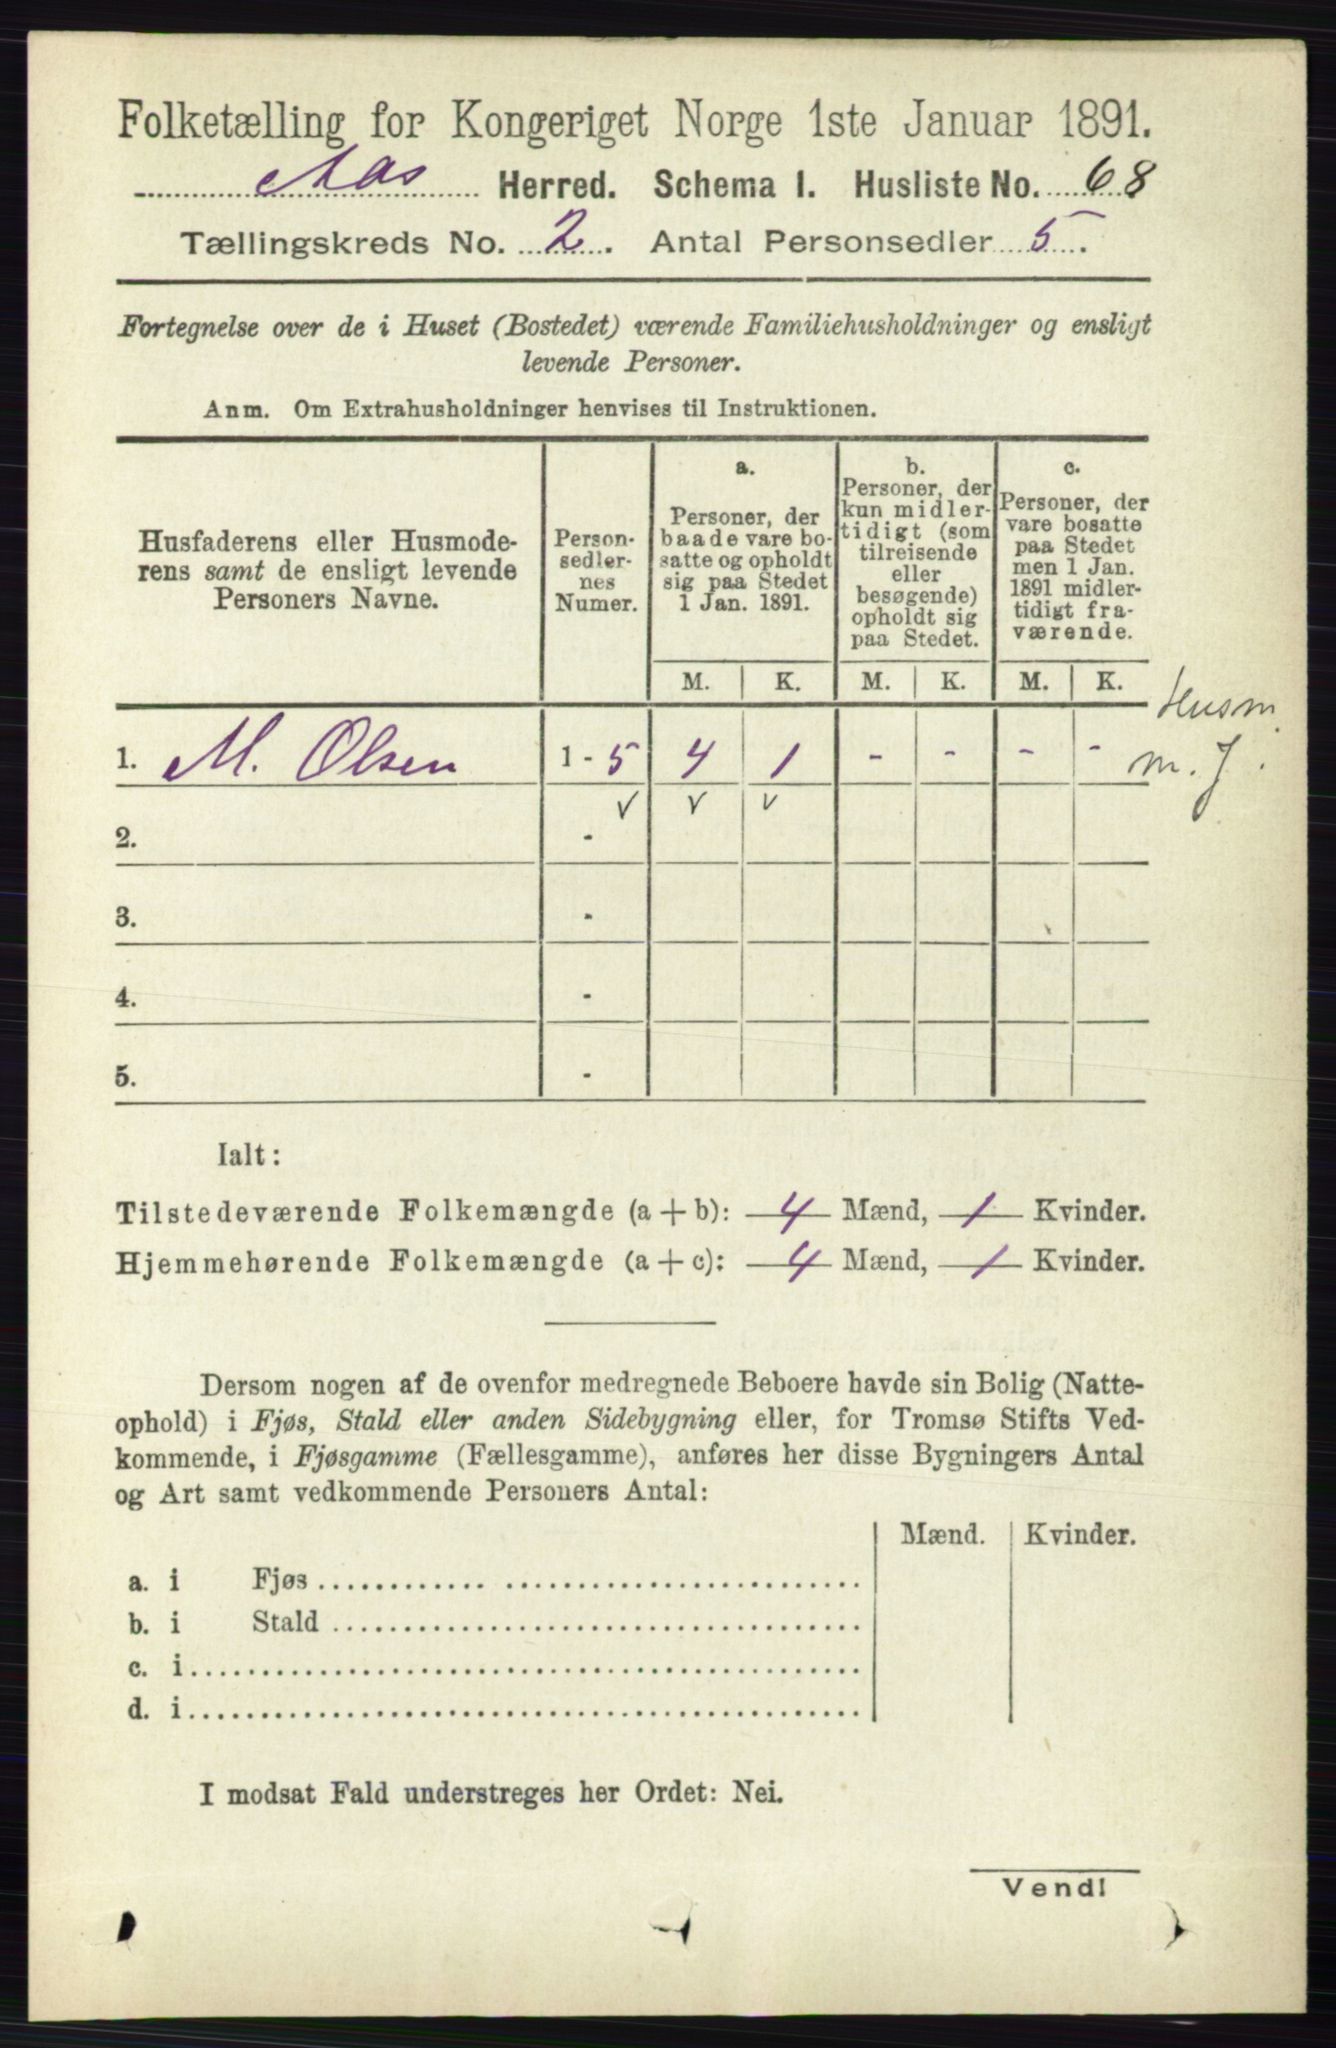 Folketælling for Kongeriget Norge 1ste Januar 1891.
Aas Herred. Schema I. Husliste No. 68
Tællingskreds No. 2. Antal Personsedler 5.
Fortegnelse over de i Huset (Bostedet) værende Familiehusholdninger og ensligt
levende Personer.
Anm. Om Extrahusholdninger henvises til Instruktionen.
Husfaderens eller Husmode-
rens samt de ensligt levende
Personers Navne.
Person-
sedler-
nes
Numer.
a.
Personer, der
baade vare bo-
satte og opholdt
sig paa Stedet
1 Jan. 1891.
b.
Personer, der
kun midler-
tidigt (som
tilreisende
eller
besøgende)
opholdt sig
paa Stedet.
c.
Personer, der
vare bosatte
paa Stedet
men 1 Jan.
1891 midler-
tidigt fra-
værende.
M. K. M. K. M. K.
Husm.
1. M. Olsen 1 - 5 4 1 - - - - m. J.
v v v
2. -
3. -
4. -
5. -
Ialt:
Tilstedeværende Folkemængde (a + b): 4 Mænd, 1 Kvinder.
Hjemmehørende Folkemængde (a + c): 4 Mænd, 1 Kvinder.
Dersom nogen af de ovenfor medregnede Beboere havde sin Bolig (Natte-
ophold) i Fjøs, Stald eller anden Sidebygning eller, for Tromsø Stifts Ved-
kommende, i Fjøsgamme (Fællesgamme), anføres her disse Bygningers Antal
og Art samt vedkommende Personers Antal:
Mænd. Kvinder.
a. i Fjøs
b. i Stald
c. i
d. i
I modsat Fald understreges her Ordet: Nei.
Vend!